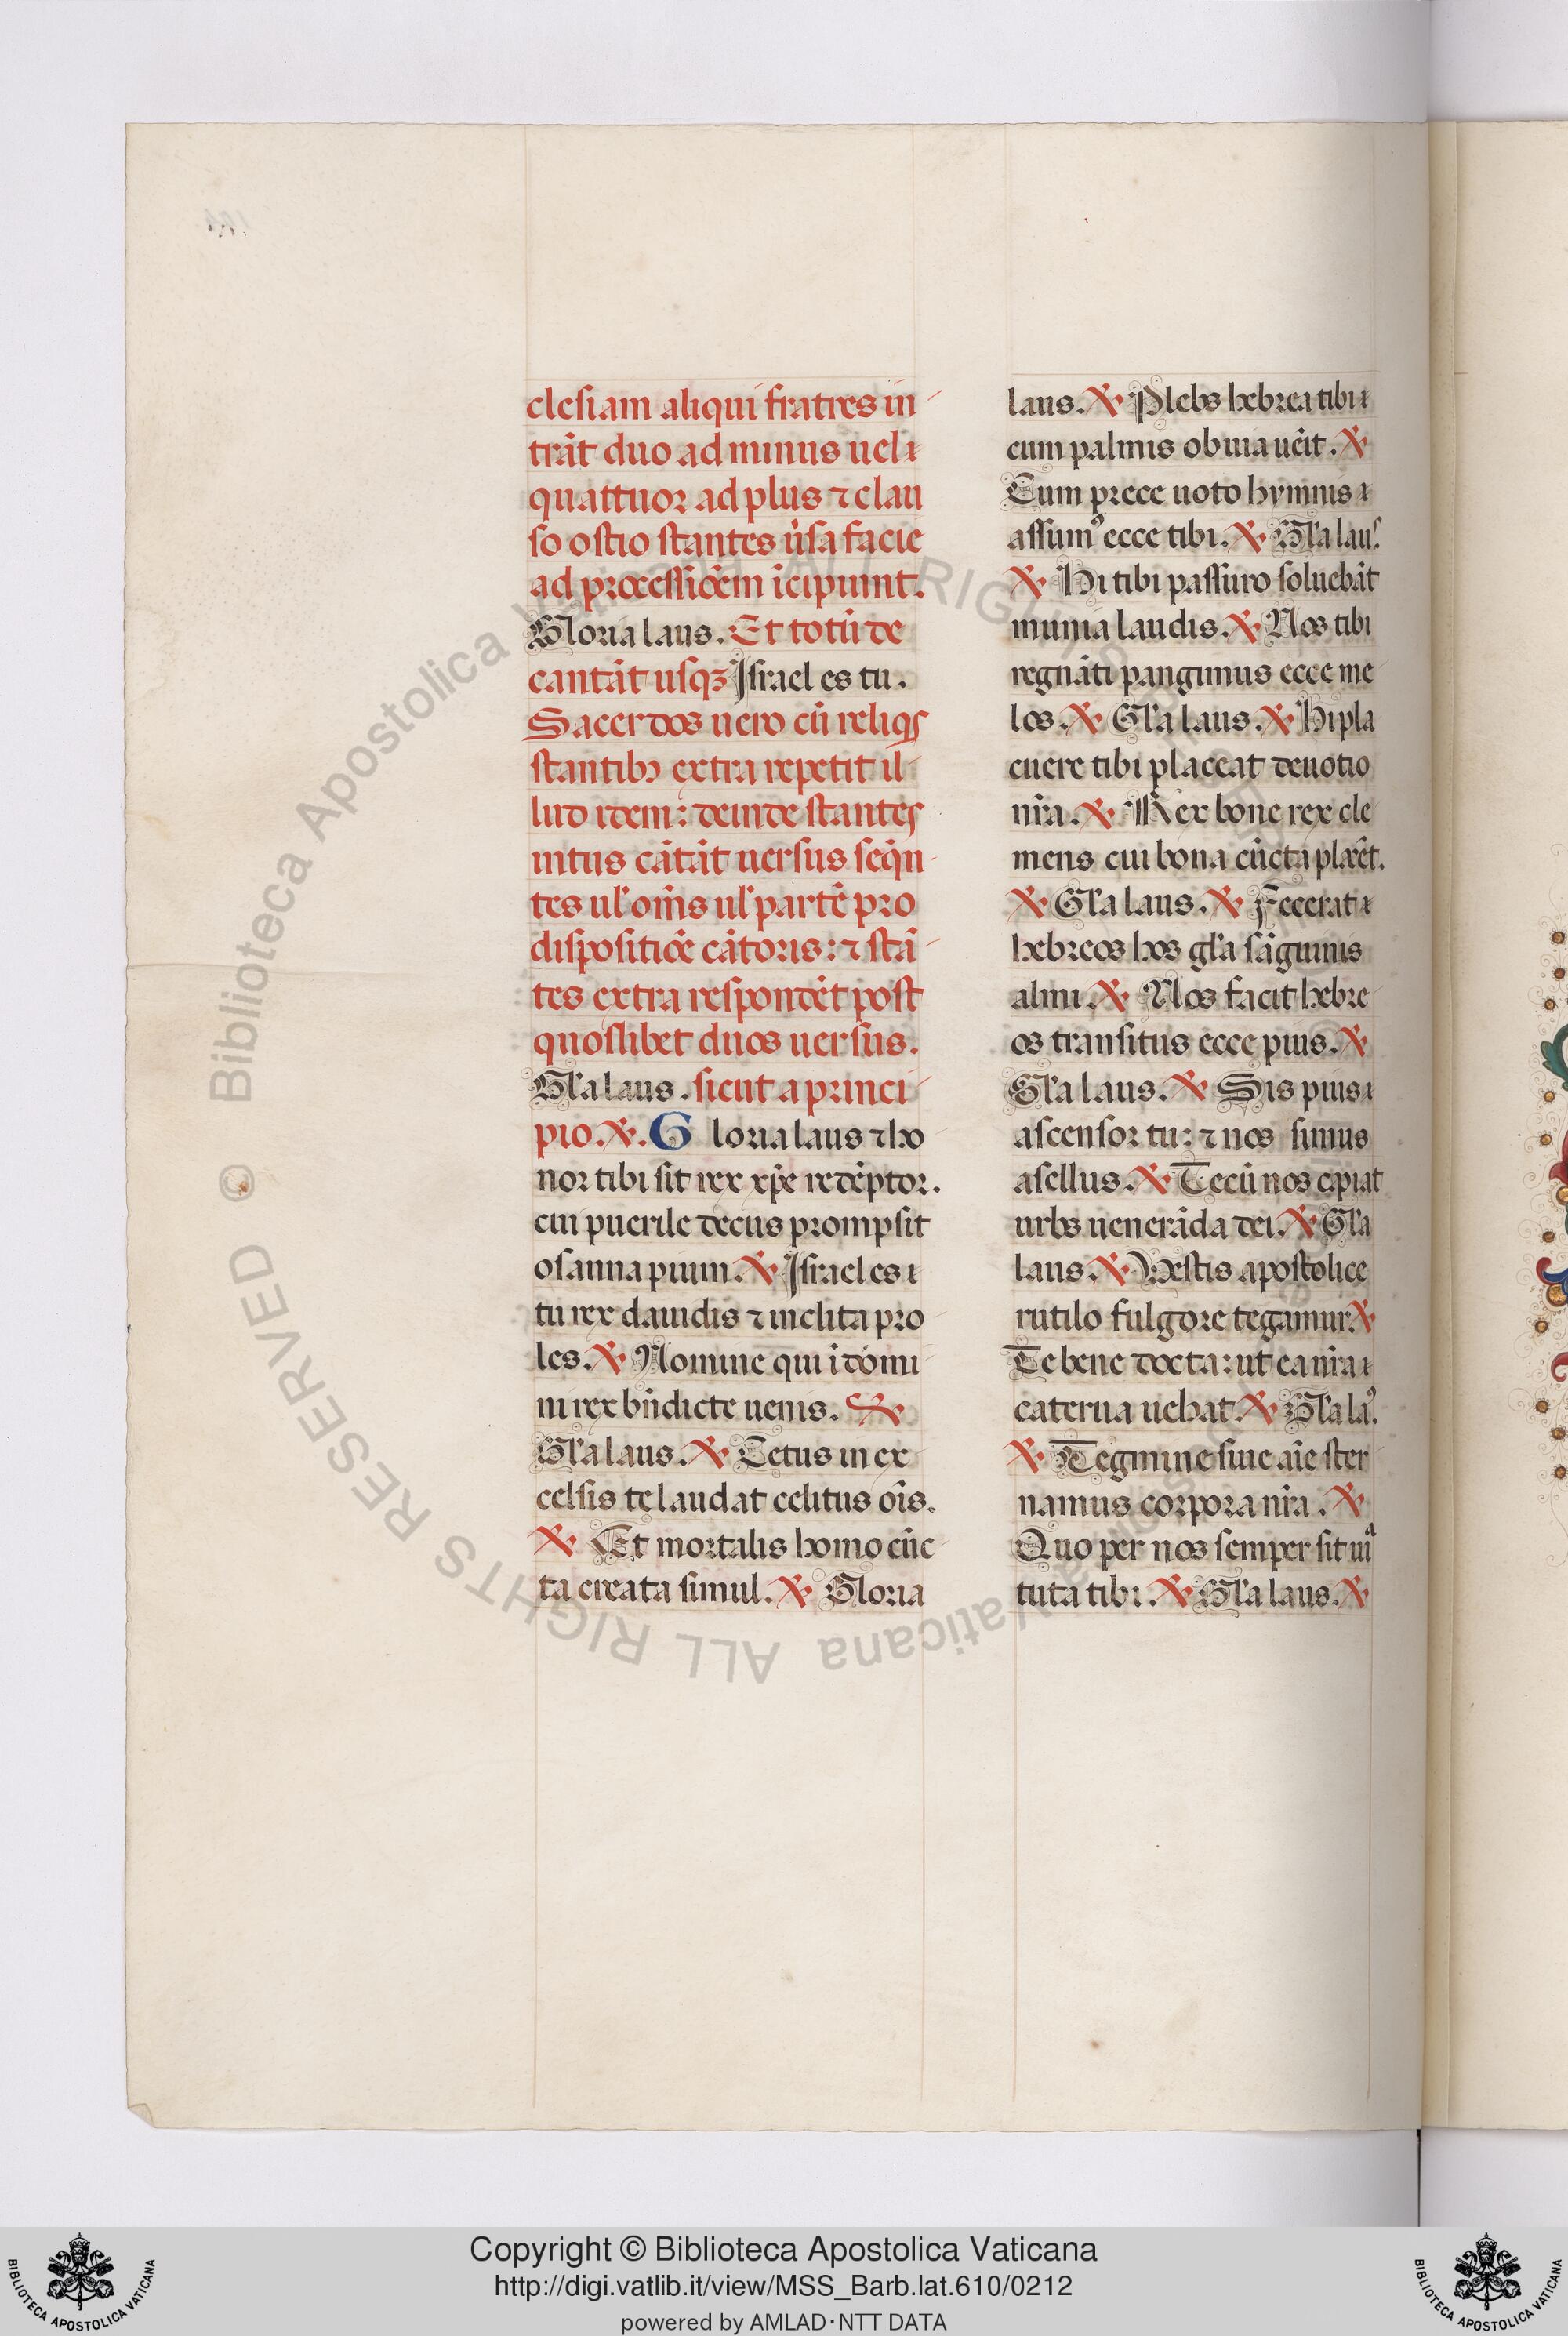 clesiam aliqui fratres in
trāt duo ad minus uel
quattuor ad plus ⁊ clau
so ostio stantes ùsa facie
ad processiōem īcipiunt.
Gloria laus. Et totū de
cantāt usqꝫ Israel es tu.
Sacerdos uero cū reliqꝭ
stantibꝰ extra repetit il
lud idem: deinde stantes
intus cātāt uersus seqn̄
tes ul' om̄s ul' partē pro
dispositiōe cātoris: ⁊ stā
tes extra respondēt post
quoslibet duos uersus.
Gl'a laus. sicut a princi
pio. ℣. Gloria laus ⁊ ho
nor tibi sit rex xp̄e redēptor.
cui puerile decus prompsit
osanna pium. ℣ Israel es
tu rex dauidis ⁊ inclita pro
les. ℣ Nomine qui ī domi
ni rex bn̄dicte uenis. ℟
Gl'a laus. ℣ Cetus in ex
celsis te laudat celitus oīs.
℣ Et mortalis homo cūc
ta creata simul. ℣ Gloria
laus. ℣ Plebs hebrea tibi
cum palmis obuia uēit. ℣
Cum prece uoto hymnis
assumꝰ ecce tibi. ℣ Gl'a laus.
℣ Hi tibi passuro soluebāt
munia laudis. ℣ Nos tibi
regnāti pangimus ecce me
los. ℣ Gl'a laus. ℣ Hi pla
cuere tibi placeat deuotio
nr̄a. ℣ Rex bone rex cle
mens cui bona cūcta placēt.
℣ Gl'a laus. ℣ Fecerat
hebreos hos gl'a sāguinis
almi. ℣ Nos facit hebre
os transitus ecce pius. ℣
Gl'a laus. ℣ Sis pius
ascensor tu: ⁊ nos simus
asellus. ℣ Tecū nos capiat
urbs uenerāda dei. ℣ Gl'a
laus. ℣ Vestis apostolice
rutilo fulgore tegamur. ℣
Te bene docta: ut ea nr̄a
caterua uehat. ℣ Gl'a laꝰ.
℣ Tegmine siue aīe ster
namus corpora nr̄a. ℣
Quo per nos semper sit uiᵃ
tuta tibi. ℣ Gl'a laus. ℣
© Biblioteca Apostolica Vaticana ALL RIGHTS RESERVED
Copyright © Biblioteca Apostolica Vaticana
http://digi.vatlib.it/view/MSS_Barb.lat.610/0212
powered by AMLAD·NTT DATA
BIBLIOTECA APOSTOLICA VATICANA
BIBLIOTECA APOSTOLICA VATICANA